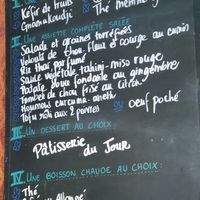 Kéfir de fruits ou Thé
Gnomukoudji
II Une assiette complète salée
Salade et graines torréfiées
Velouté de thon, fleur et courge au cumin
Riz thaï parfumé
Sauce végétale tahini-miso rouge
Patate douce fondante au gingembre
Tombée de chou frisé au citron
Houmous curcuma-aneth
Tofu noix aux 2 poivres ou oeuf poché
III Un dessert au choix:
Pâtisserie
du Jour
IV Une boisson chaude au choix:
Thé